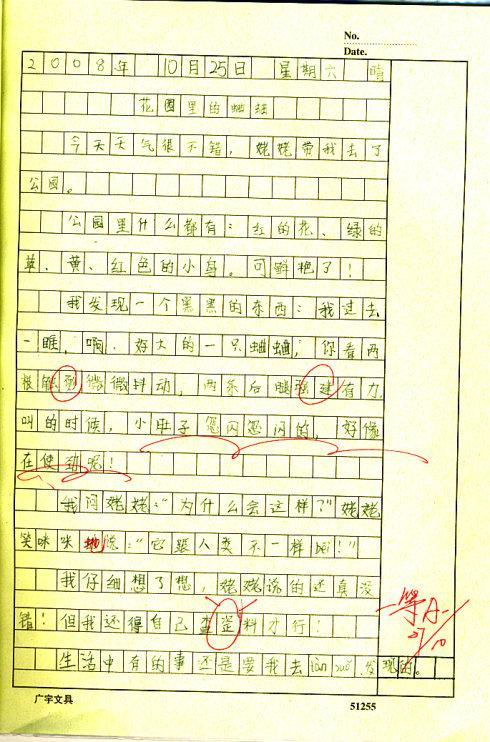 No.
Date.
2008年 10月25日 星期六 晴
花园里的蛐蛐
今天天气很不错，姥姥带我去了
公园。
公园里什么都有：红的花、绿的
草、黄、红色的小鸟。可鲜艳了！
我发现一个黑黑的东西：我过去
一瞧，啊，好大的一只蛐蛐，你看两
根触须微微抖动，两条后腿强建有力，
叫的时候，小肚子忽闪忽闪的，好像
在使劲呢！
我问姥姥：“为什么会这样？”姥姥
笑咪咪地说：“它跟人类不一样呗！”
我仔细想了想，姥姥说的还真没
错！但我还得自己查资料才行！
生活中有的事还是要我去tàn suǒ、发现的。
一等A-
广宇文具
51255